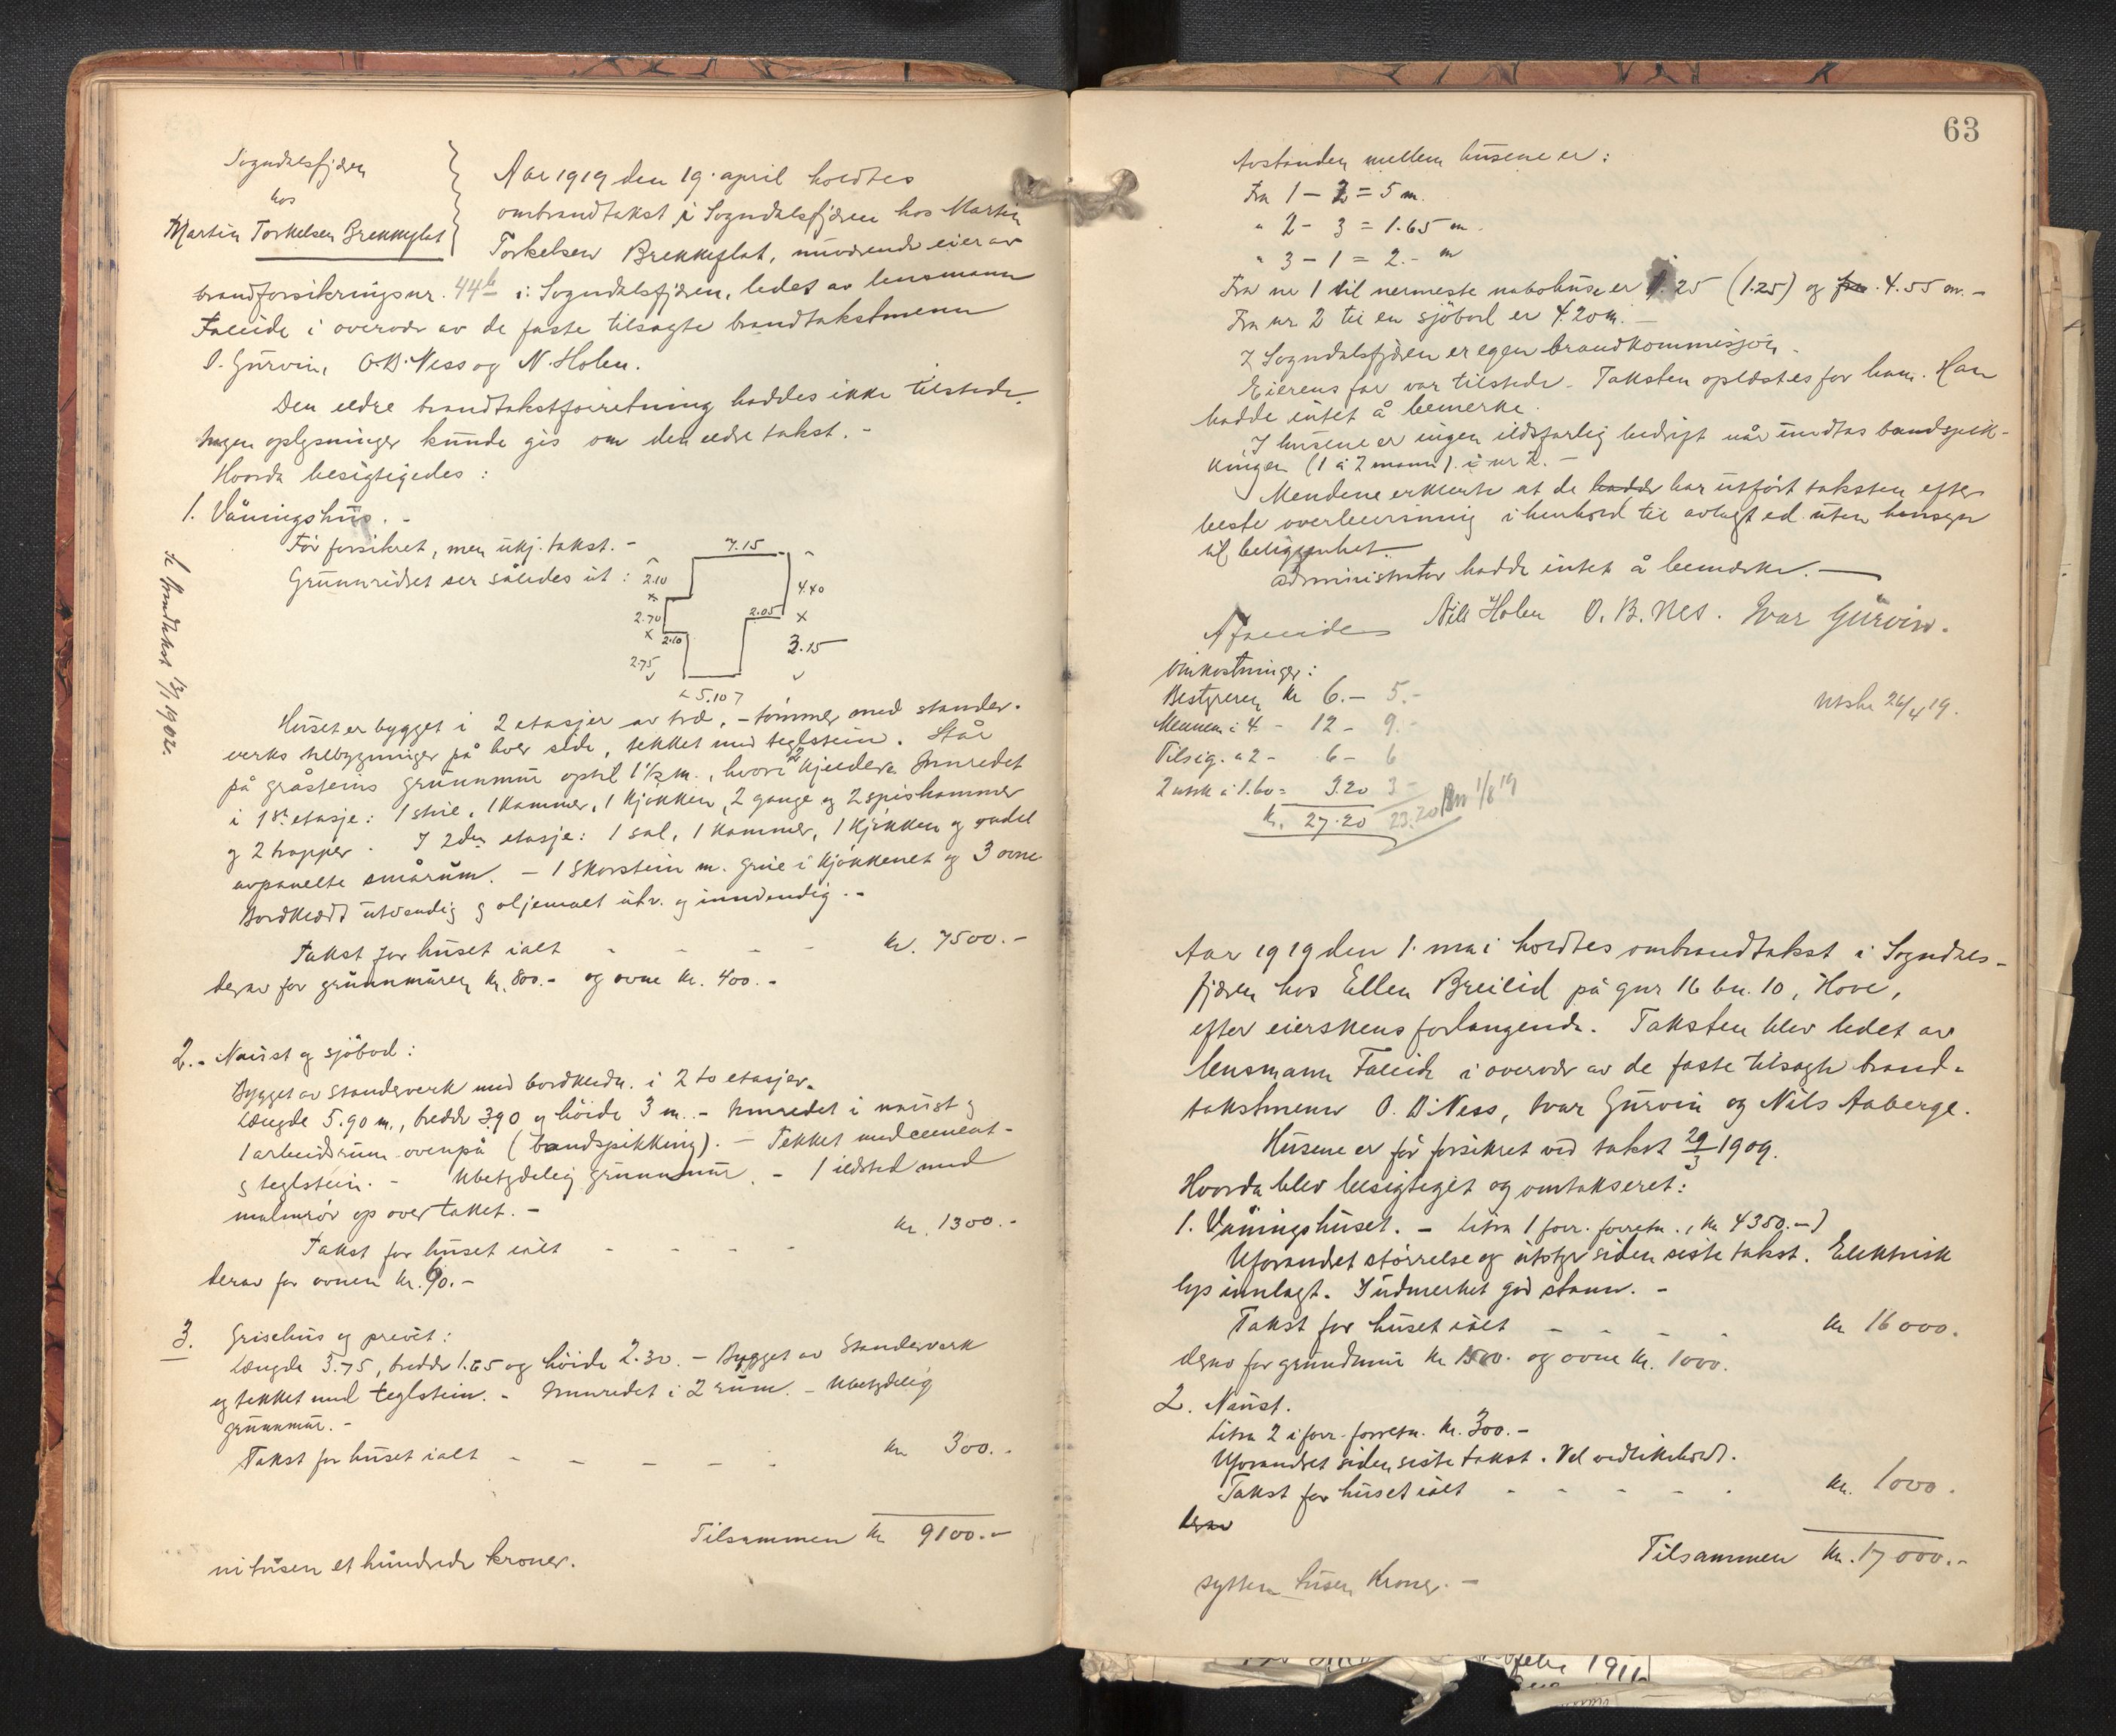 Sogndalsfjæren
hos
Martin Torkelsen Brekkeflat
Aar 1919 den 19. april holdtes
ombrandtakst i Sogndalsfjæren hos Martin
Torkelsen Brekkeflat, nuværende eier av
brandforsikringsnr. 44b i Sogndalsfjæren, ledet av lensmann
Faleide i overvær av de faste tilsagte brandtakstmenn
I. Gurvin, O.B. Ness og N. Holen.
Den eldre brandtakstforretning haddes ikke tilstede.
Ingen oplysninger kunde gis om den eldre takst. -
Hvorda besigtigedes :
1. Våningshus. -
Før forsikret, men ukj. takst. -
Grunnridset ser således ut :
7.15
2.10
4.40
2.70
2.05
2.10
3.15
2.75
5.10
Se brandtakst 13/1 1902.
Huset er bygget i 2 etasjer av træ, - tømmer med stander-
verks tilbygninger på hver side, tekket med teglstein. Står
på gråsteins grunnmur optil 1 1/2 m., hvori 2 kjeldere. Innredet
i 1ste etasje: 1 stue, 1 kammer, 1 kjøkken, 2 gange og 2 spiskammer
og 2 trapper. I 2den etasje: 1 sal, 1 kammer, 1 kjøkken og endel
avpanelte smårum. - 1 skorstein m. grue i kjøkkenet og 3 ovne
Bordklædt utvendig og oljemalt utv. og innvendig. -
Takst for huset ialt - - - - kr. 7500.-
derav for grunnmuren kr. 800.- og ovne kr. 400.-
2. - Naust og sjøbod :
Bygget av standerverk med bordkledn. i 2 to etasjer.
Længde 5.90 m., bredde 3.90 og høide 3 m. - Innredet i naust og
1 arbeidsrum ovenpå (bandspikking). - Tekket med cement-
og teglstein. - Ubetydelig grunnmur. - 1 ildsted med
malmrør op over taket. -
Takst for huset ialt - - - - kr. 1300.-
derav for ovnen kr. 60.-
3. Grisehus og privet :
Længde 3.75, bredde 1.65 og høide 2.30. - Bygget av standerverk
og tekket med teglstein. - Innredet i 2 rum. - Ubetydelig
grunnmur. -
Takst for huset ialt - - - - - kr 300.-
Tilsammen kr 9100.-
ni tusen et hundrede kroner.
63
Avstanden mellem husene er :
Fra 1 - 2 = 5 m.
" 2 - 3 = 1.65 m.
" 3 - 1 = 2.- m
Fra nr 1 til nermeste nabohuse er 1.25 (1.25) og 4.55 m. -
Fra nr 2 til en sjøbod er 4.20 m. -
I Sogndalsfjæren er egen brandkommisjon. -
Eierens far var tilstede. Taksten oplæstes for ham. Han
hadde intet å bemerke.
I husene er ingen ildsfarlig bedrift når undtas bandspik-
kingen (1 à 2 mann) i nr 2. -
Mendene erklærte at de hadde har utført taksten efter
beste overbevisning i henhold til avlagt ed uten hensyn
til beliggenhet. -
Administrator hadde intet å bemerke. -
A Faleide Nils Holen O. B. Nes. Ivar Gurvin.
Omkostninger :
Bestyreren kr 6.- 5.-
Mennene à 4 - 12 - 9.-
Tilsig. à 2 - 6 - 6
2 utsk à 1.60 = 3.20 3 -
Kr. 27.20 23.20 1/8 19
Utskr 26/4 19.
Aar 1919 den 1. mai holdtes ombrandtakst i Sogndals-
fjæren hos Ellen Breilid på gnr 16 bn. 10, Hove,
efter eierskens forlangende. Taksten blev ledet av
lensmann Faleide i overvær av de faste tilsagte brand-
takstmenn O. B. Ness, Ivar Gurvin og Nils Aaberge.
Husene er før forsikret ved takst 29/3 1909.
Hvorda blev besigtiget og omtakseret :
1. Våningshuset. - Litra 1 forr. forretn., kr 4350.-)
Uforandret størrelse og utstyr siden siste takst. Elektrisk
lys innlagt. I udmerket god stann. -
Takst for huset ialt - - - - kr 16000.
derav for grundmur kr 1500. og ovne kr. 1000.
2. Naust.
Litra 2 i forr. forretn. kr. 300.-
Uforandret siden siste takst. Vel vedlikeholdt.
Takst for huset ialt - - - - - kr. 1000.
derav
Tilsammen kr. 17000.-
sytten tusen kroner. -
1911